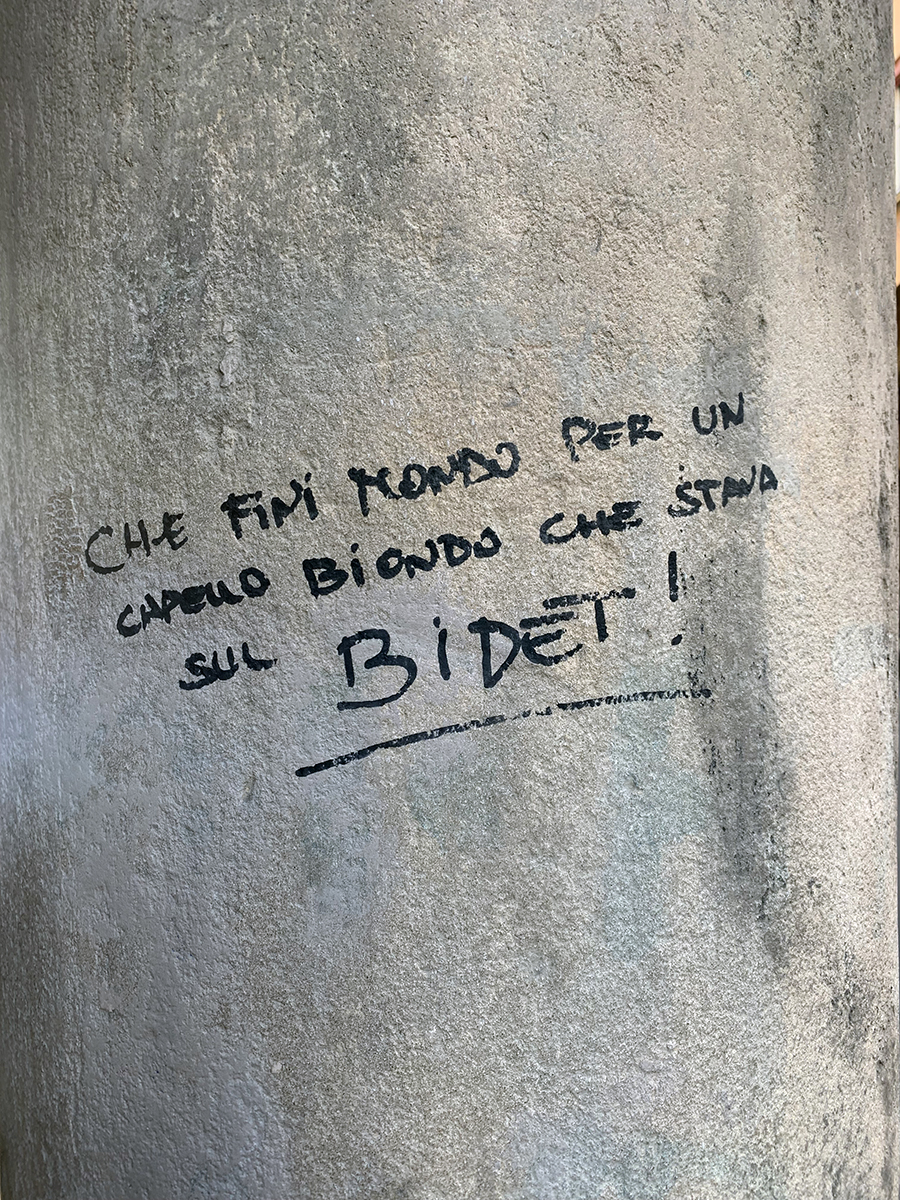 CHE FINI MONDO PER UN
CAPELLO BIONDO CHE STAVA
SUL BIDET!